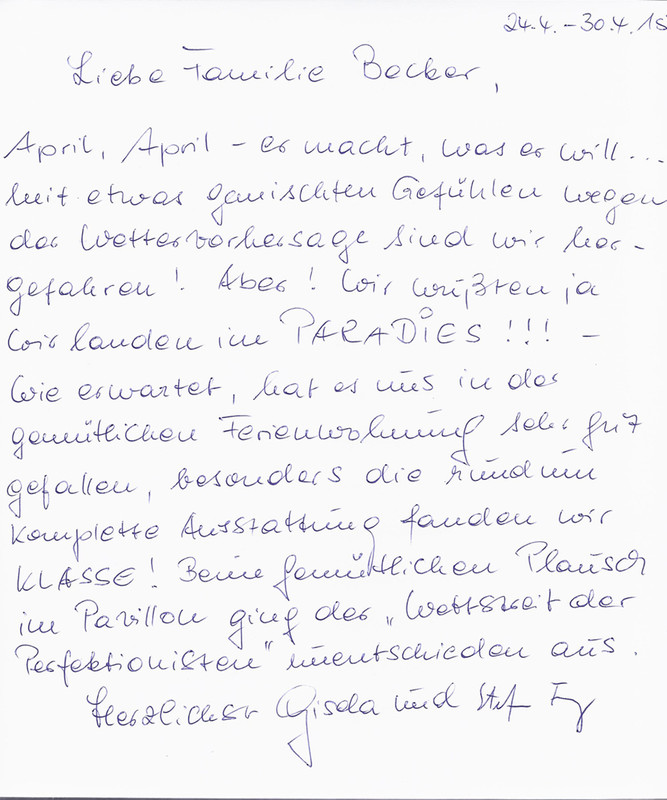 24.4.-30.4.15
Liebe Familie Becker,
April, April - er macht, was er will...
mit etwas gemischten Gefühlen wegen
der Wettervorhersage sind wir her-
gefahren! Aber! Wir wußten ja
wir landen im PARADIES!!! -
Wie erwartet, hat es uns in der
gemütlichen Ferienwohnung sehr gut
gefallen, besonders die rundum
komplette Ausstattung fanden wir
KLASSE! Beim gemütlichen Plausch
im Pavillon ging der „Wettstreit der
Perfektionisten" unentschieden aus.
Herzlichst Gisela und